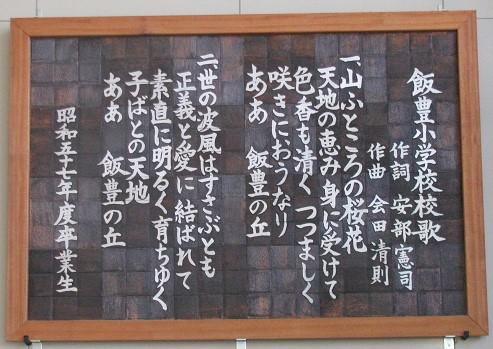 飯豊小学校校歌
作詞 安部憲司
作曲 会田清則
一、山ふところの桜花
天地の恵み身に受けて
色香も清く つつましく
咲きにおうなり
ああ 飯豊の丘
二、世の波風はすさぶとも
正義と愛に結ばれて
素直に明るく育ちゆく
子ばとの天地
ああ 飯豊の丘
昭和五十七年度卒業生